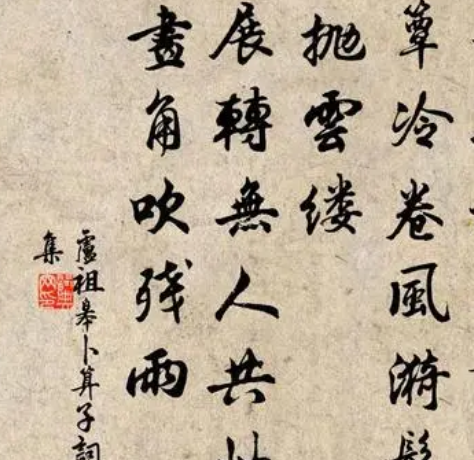 簟冷卷風漪
抛雲缕
展轉無人共
畫角吹残雨
盧祖皋卜算子詞
集